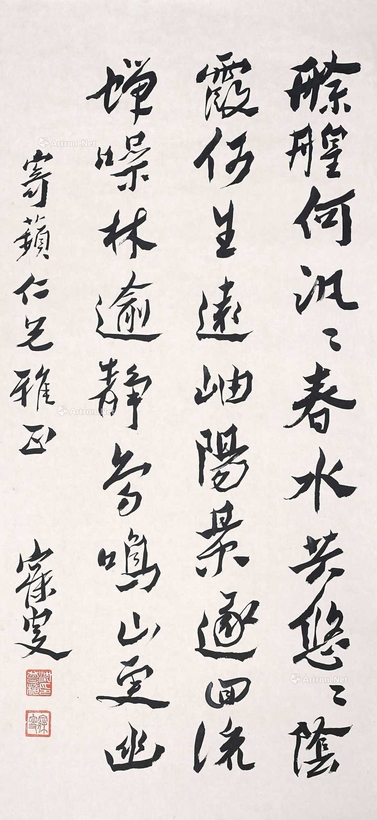 艅艎何汎〻春水共悠〻陰
霞何生遠岫陽景逐回流
蟬噪林逾靜鳥鳴山更幽
寄蘋仁兄雅正 寐叟
Artron.Net